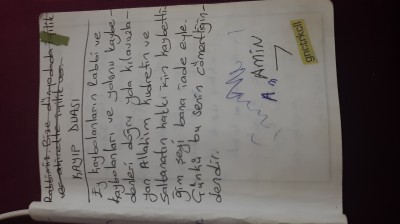 Rabbimiz Bize dünyada iyilik
ve ahirette iyilik ver.
KAYIP DUASI
Ey kaybolanların Rabbi ve
kaybolanları ve yolunu kaybe-
denleri doğru yola kılavuzla-
yan Allahım kudretin ve
saltanatın hakkı için kaybetti
ğim şeyi bana iade eyle.
Çünkü bu senin cömertliğin-
dendir.
AMİN
gıpta